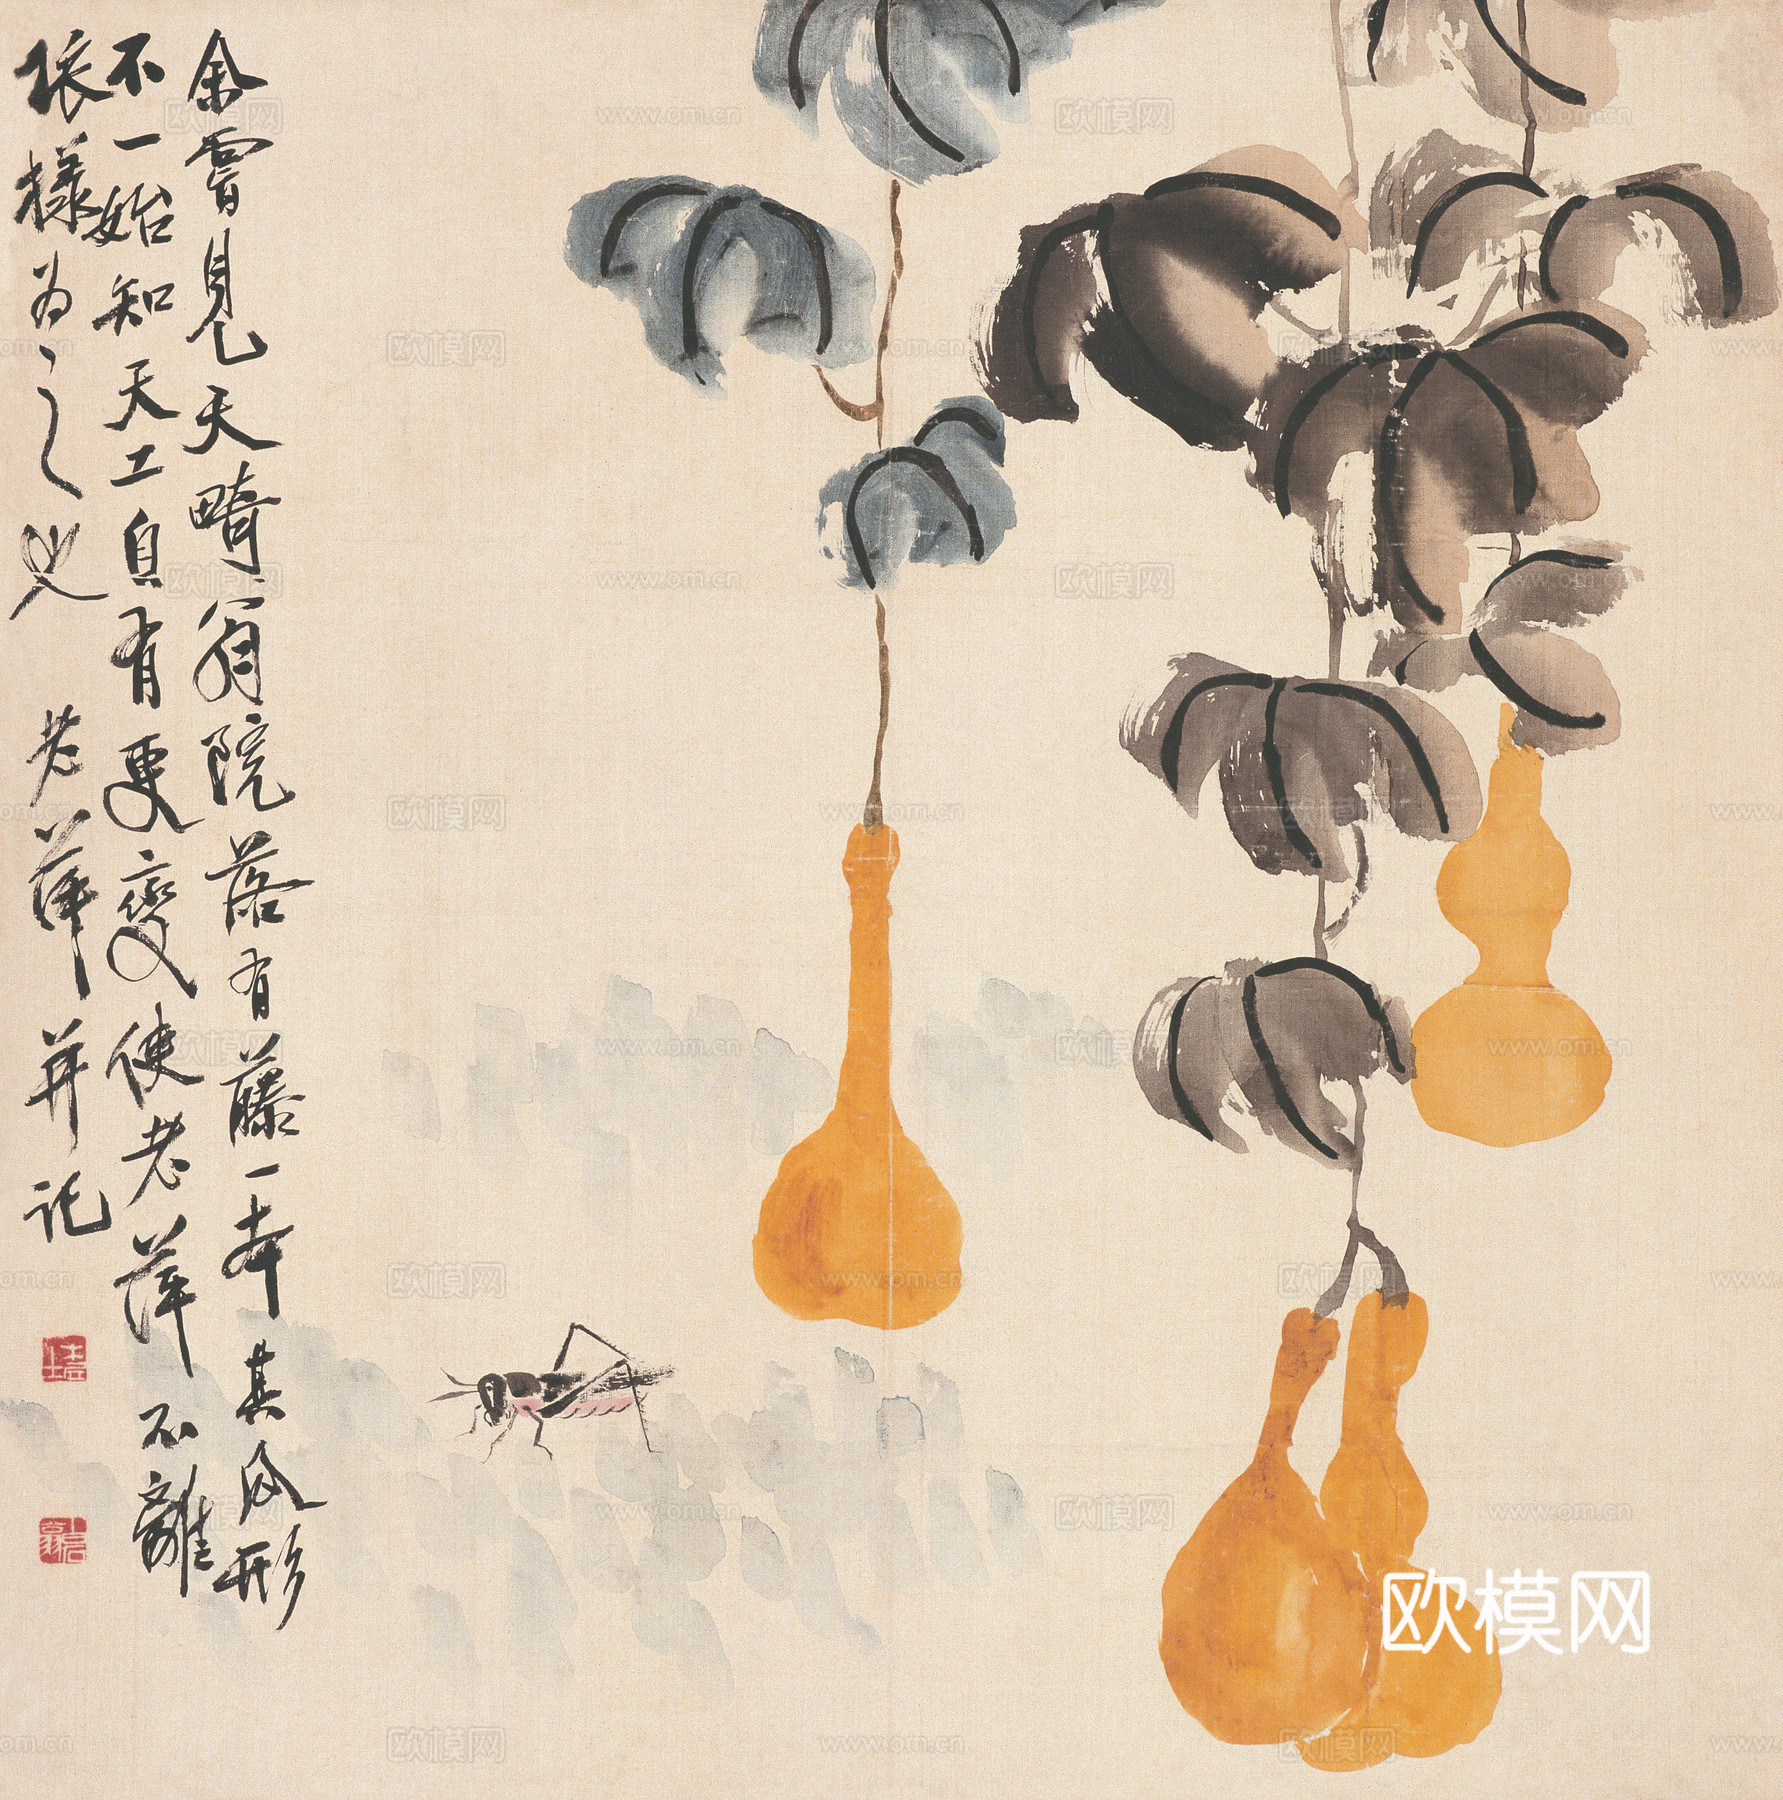 余嘗見天疇翁院落有藤一本其瓜形
不一始知天工自有更變使老萍不離
依樣為之也 老萍并记
欧模网
www.om.cn